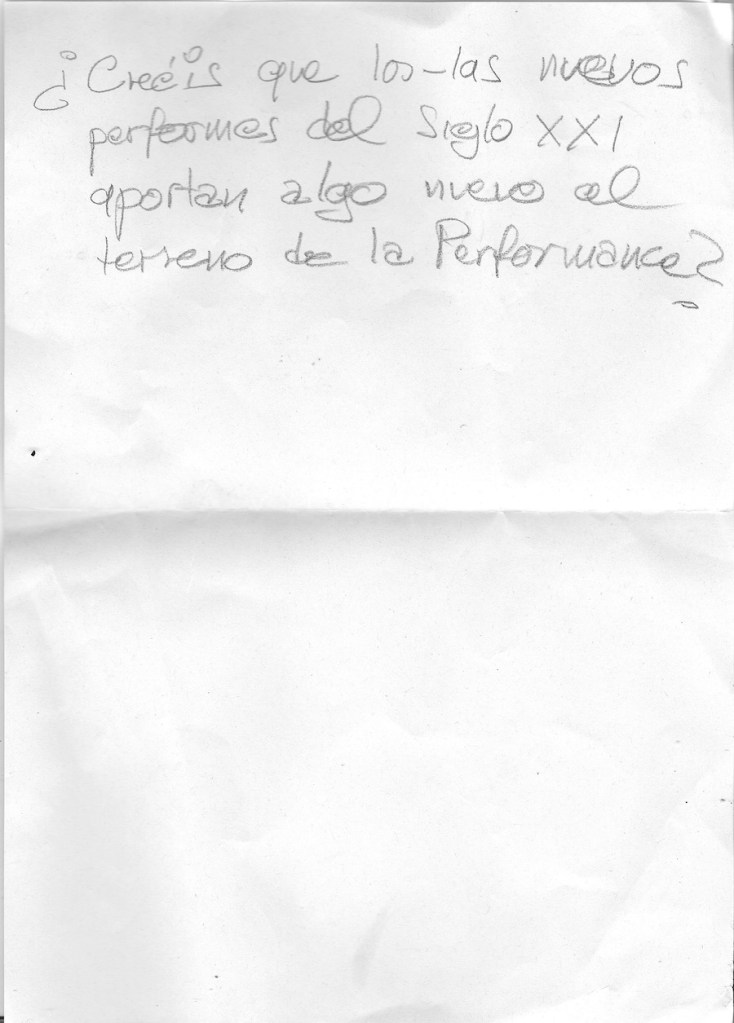 ¿Creéis que los-las nuevos
performes del Siglo XXI
aportan algo nuevo al
terreno de la Performance?